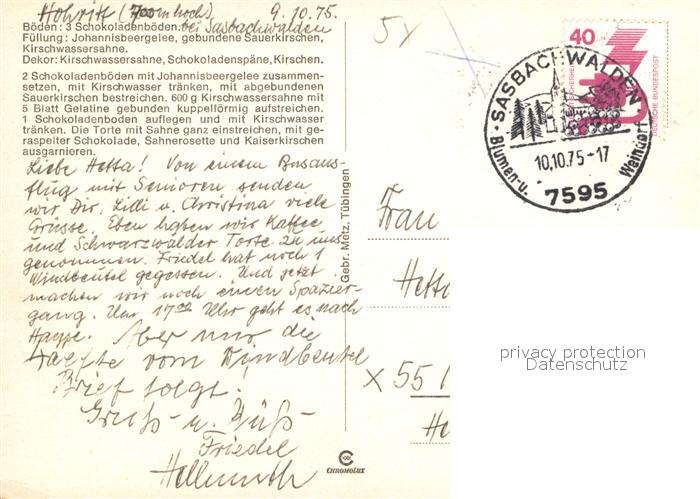 Hohritt (700m hoch) 9.10.75.
bei Sasbachwalden
Böden: 3 Schokoladenböden.
Füllung: Johannisbeergelee, gebundene Sauerkirschen,
Kirschwassersahne.
Dekor: Kirschwassersahne, Schokoladenspäne, Kirschen.
2 Schokoladenböden mit Johannisbeergelee zusammen-
setzen, mit Kirschwasser tränken, mit abgebundenen
Sauerkirschen bestreichen. 600 g Kirschwassersahne mit
5 Blatt Gelatine gebunden kuppelförmig aufstreichen.
1 Schokoladenboden auflegen und mit Kirschwasser
tränken. Die Torte mit Sahne ganz einstreichen, mit ge-
raspelter Schokolade, Sahnerosette und Kaiserkirschen
ausgarnieren.
Liebe Hetta! Von einem Busaus-
flug mit Senioren senden
wir Dir, Lilli u. Christina viele
Grüsse. Eben haben wir Kaffee
und Schwarzwälder Torte zu uns
genommen. Friedel hat noch 1
Windbeutel gegessen. Und jetzt
machen wir noch einen Spazier-
gang. Um 17°° Uhr geht es nach
Hause. Aber nur die
Hälfte vom Windbeutel
Brief folgt!
Gruß- u. Küß-
Friedel
Hellmuth
Gebr. Metz, Tübingen
CHROMOLUX
5x
40
DEUTSCHE BUNDESPOST
SASBACHWALDEN
10.10.75-17
Blumen- u. Weindorf
7595
Frau
Hetta
x 55
privacy protection
Datenschutz